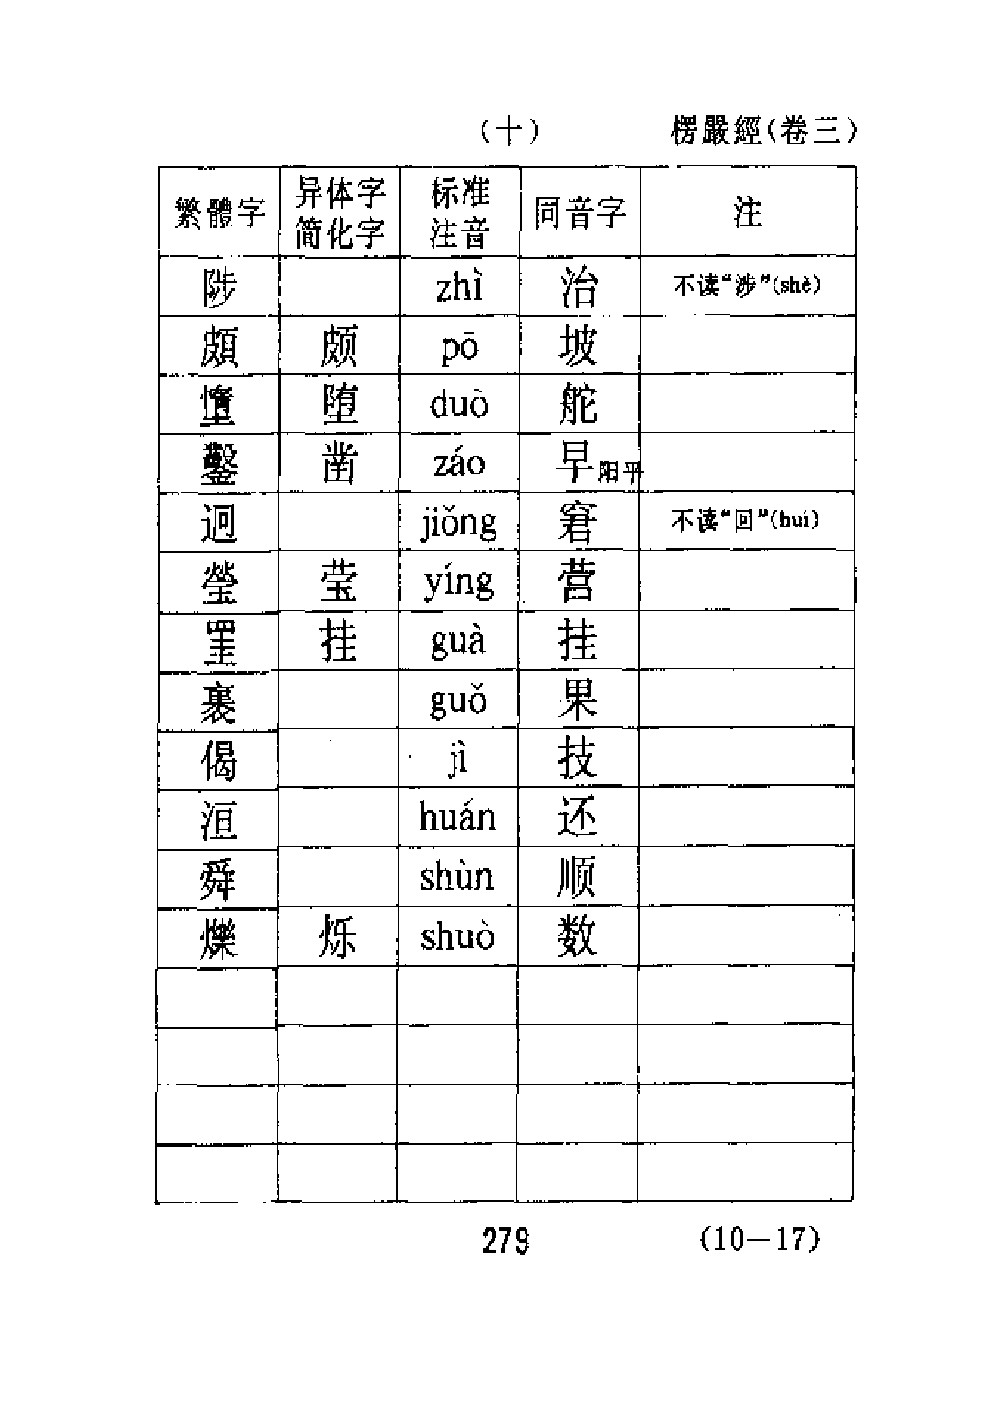 （十） 楞嚴經（卷三）
繁體字 异体字 简化字 标准 注音 同音字 注
陟 zhì 治 不读“涉”(shè)
頗 颇 pō 坡
墮 堕 duò 舵
鑿 凿 záo 早阳平
迥 jiǒng 窘 不读“回”(huí)
瑩 莹 yíng 营
罣 挂 guà 挂
裹 guǒ 果
偈 jì 技
洹 huán 还
舜 shùn 顺
爍 烁 shuò 数
279 (10—17)